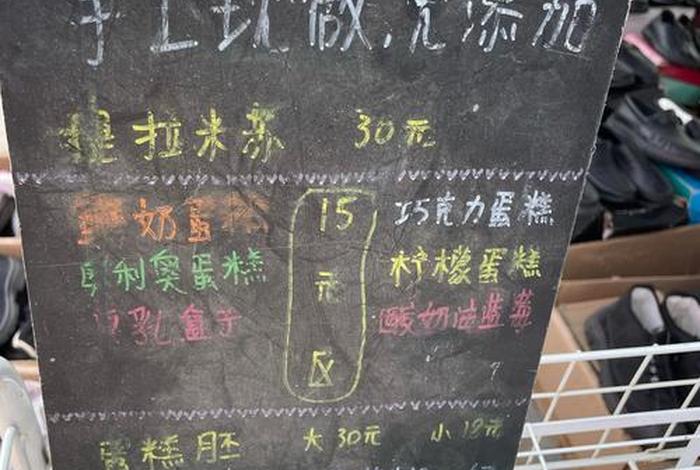 手工现做,无添加
提拉米苏 30元
奶蛋 15 巧克力蛋糕
利奥蛋糕 元 柠檬蛋糕
乳盒子 酸奶油蓝莓
区
蛋糕胚 大30元 小18元